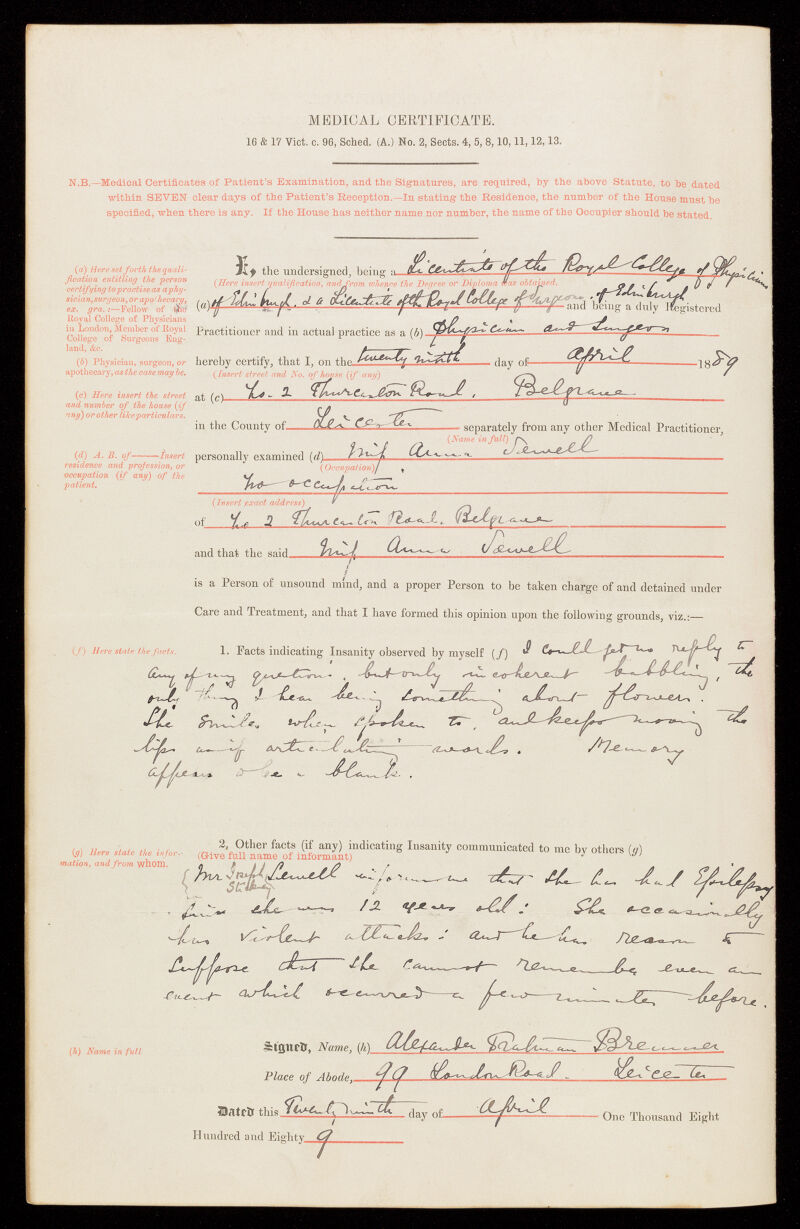 MEDICAL CERTIFICATE.
16 & 17 Vict. c. 96, Sched. (A.) No. 2, Sects. 4, 5, 8, 10, 11, 12, 13.
N.B.—Medical Certificates of Patient's Examination, and the Signatures, are required, by the above Statute, to be dated
within SEVEN clear days of the Patient's Reception.—In stating the Residence, the number of the House must be
specified, when there is any. If the House has neither name nor number, the name of the Occupier should be stated.
(a) Here set forth the quali-
fication entitling the person
certifying to practise as a phy-
sician, surgeon, or apothecary,
ex. gra.:—Fellow of the
Royal College of Physicians
in London, Member of Royal
College of Surgeons Eng-
land, &c.
(b) Physician, surgeon, or
apothecary, as the case may be.
(c) Here insert the street
and number of the house (if
any) or other like particulars.
(d) A. B. of——Insert
residence and profession, or
occupation (if any) of the
patient.
I, the undersigned, being a Licentiate of the Royal College of Physicians
(Here insert qualification, and from whence the Degree or Diploma was obtained.
(a) of Edinburgh, & a Licentiate of the Royal College of Surgeons, of Edinburgh and being a duly Registered
Practitioner and in actual practice as a (b) Physician and Surgeon
hereby certify, that I, on the twenty ninth day of April 1889
(Insert street and No. of house (if any)
at (c) No. 2 Thurcaston Road, Belgrave
in the County of Leicester separately from any other Medical Practitioner,
(Name in full)
personally examined (d) Miss Anna Sewell
(Occupation)
no occupation
(Insert exact address)
of No 2 Thurcaston Road, Belgrave
and that the said Miss Anna Sewell
is a Person of unsound mind, and a proper Person to be taken charge of and detained under
Care and Treatment, and that I have formed this opinion upon the following grounds, viz.:—
(f) Here state the facts.
1. Facts indicating Insanity observed by myself (f) I could get no reply to
any of my questions, but only incoherent babbling, the
only thing I hear being something about flowers.
She smiles when spoken to, and keeps moving the
lips as if articulating words. Memory
appears to be a blank.
(g) Here state the infor-
mation, and from whom.
2. Other facts (if any) indicating Insanity communicated to me by others (g)
(Give full name of informant)
Mr Joseph Sewell informs me that she has had Epilepsy
since she was 12 years old: She occasionally
has violent attacks: and he has reason to
suppose that she cannot remember even an
event which occurred a few minutes before.
(h) Name in full
Signed, Name, (h) Alexander Bremner
Place of Abode, 99 London Road. Leicester
Dated this Twenty ninth day of April One Thousand Eight
Hundred and Eighty 9